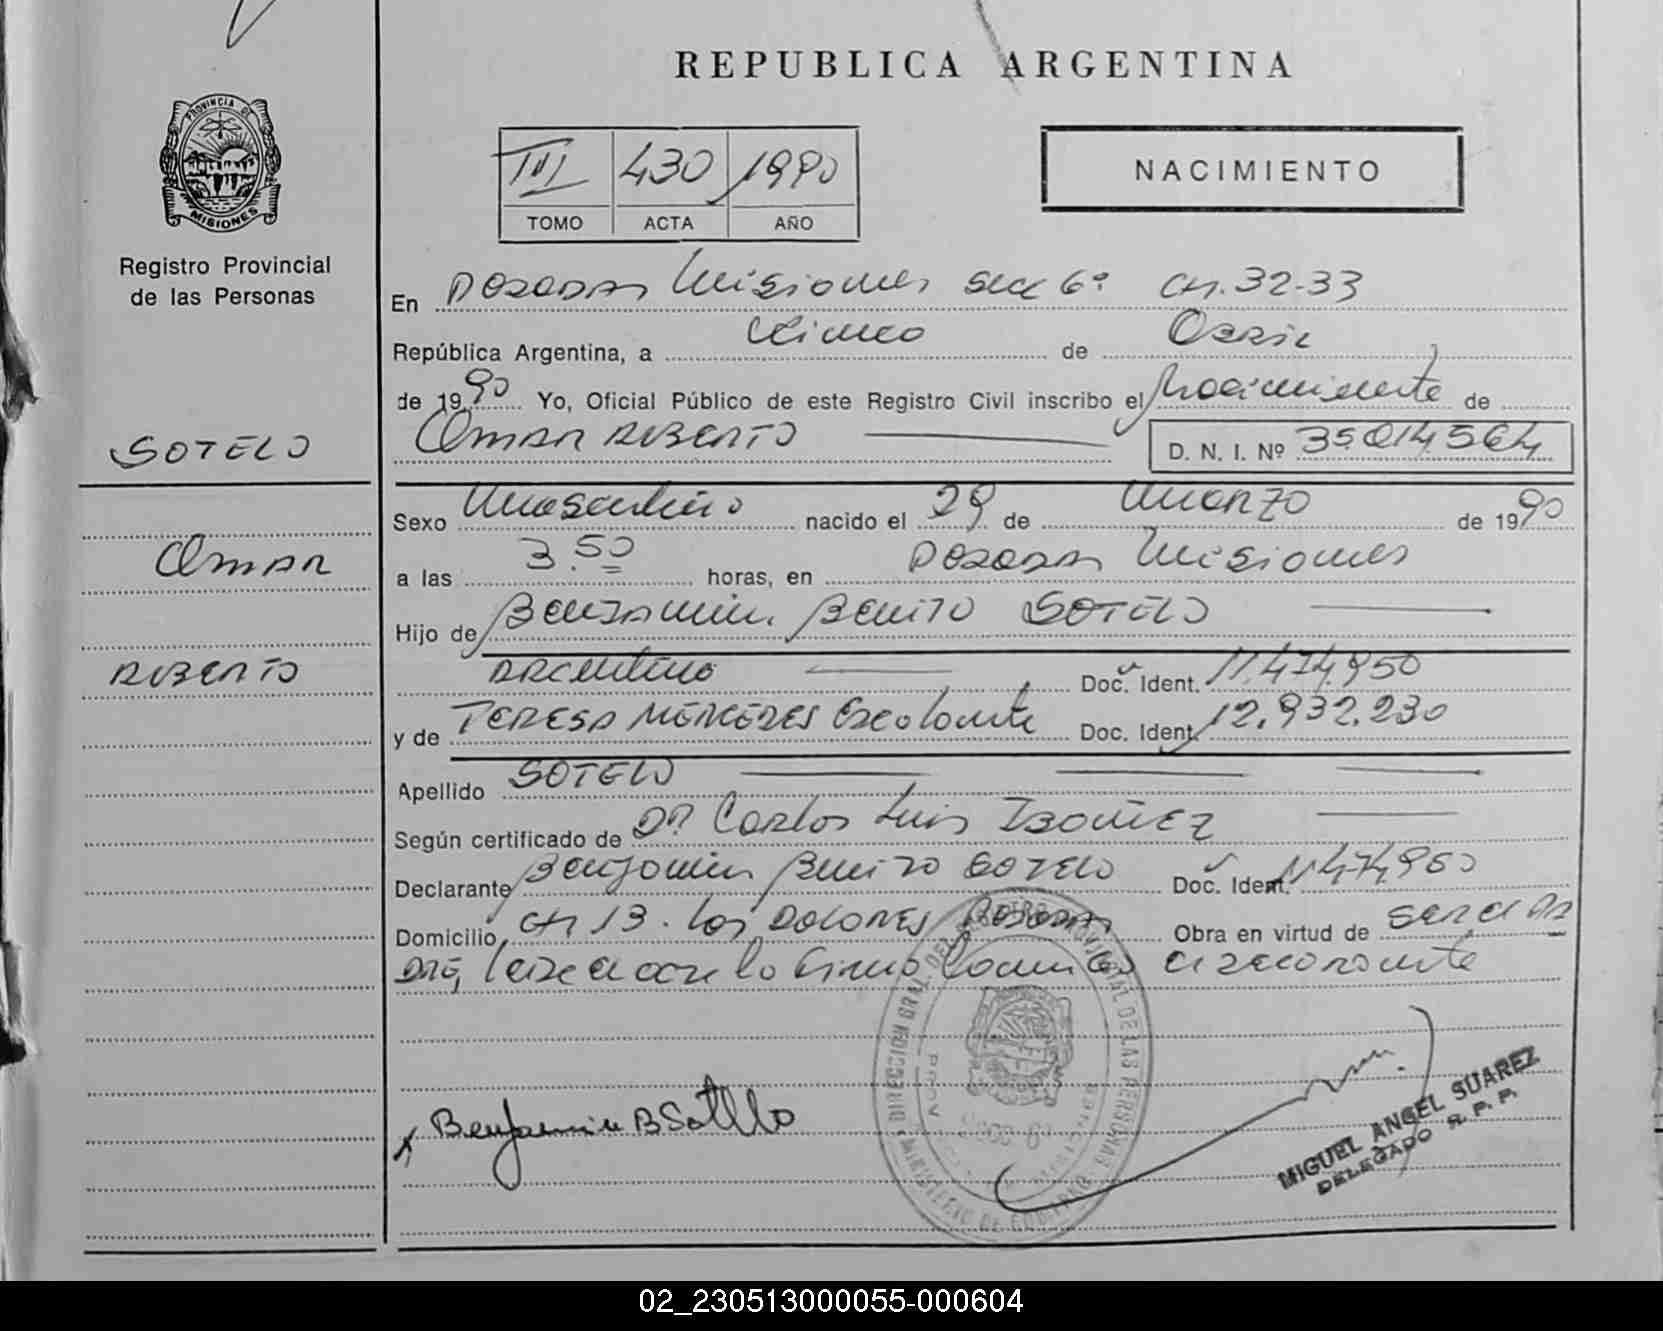 REPUBLICA ARGENTINA
PROVINCIA DE MISIONES
III 430 1990
TOMO ACTA AÑO
NACIMIENTO
Registro Provincial
de las Personas
En Posadas Misiones Secc 6ª CH. 32-33
República Argentina, a Cinco de Abril
de 1990 Yo, Oficial Público de este Registro Civil inscribo el Nacimiento de
SOTELO
Omar RUBERTO D. N. I. Nº 35.014.564
Sexo Masculino nacido el 29 de Marzo de 1990
Omar
a las 3.50 horas, en Posadas Misiones
Hijo de Benjamin Benito SOTELO
RUBERTO
Argentino Doc. Ident. 11.474.950
y de TERESA MERCEDES Escalante Doc. Ident. 12.932.230
Apellido SOTELO
Según certificado de Dr. Carlos Luis Ibañez
Declarante Benjamin Benito SOTELO Doc. Ident. 11474950
Domicilio CH 13. Los DOLORES Posadas Obra en virtud de ser el PA
DRE, Leida el acta la firma el declarante
Benjamin B Sotelo
DIRECCION GRAL. DEL REGISTRO PROVINCIAL DE LAS PERSONAS
MINISTERIO DE GOBIERNO
MIGUEL ANGEL SUAREZ
DELEGADO R. P. P.
02_230513000055-000604